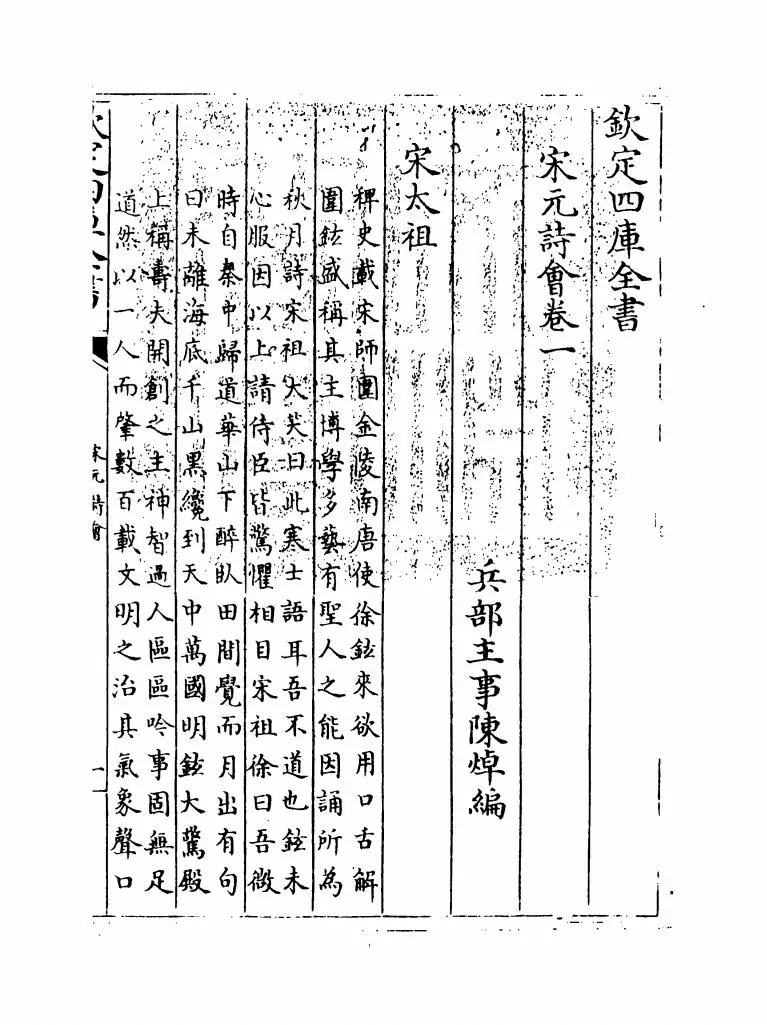 欽定四庫全書
宋元詩會卷一
兵部主事陳焯編
宋太祖
稗史載宋師圍金陵南唐使徐鉉來欲用口舌解
圍鉉盛稱其主博學多藝有聖人之能因誦所為
秋月詩宋祖大笑曰此寒士語耳吾不道也鉉未
心服因以上請侍臣皆驚懼相目宋祖徐曰吾微
時自秦中歸道華山下醉臥田間覺而月出有句
曰未離海底千山黑纔到天中萬國明鉉大驚殿
上稱壽夫開創之主神智過人區區吟事固無足
道然以一人而肇數百載文明之治其氣象聲口
宋元詩會
一